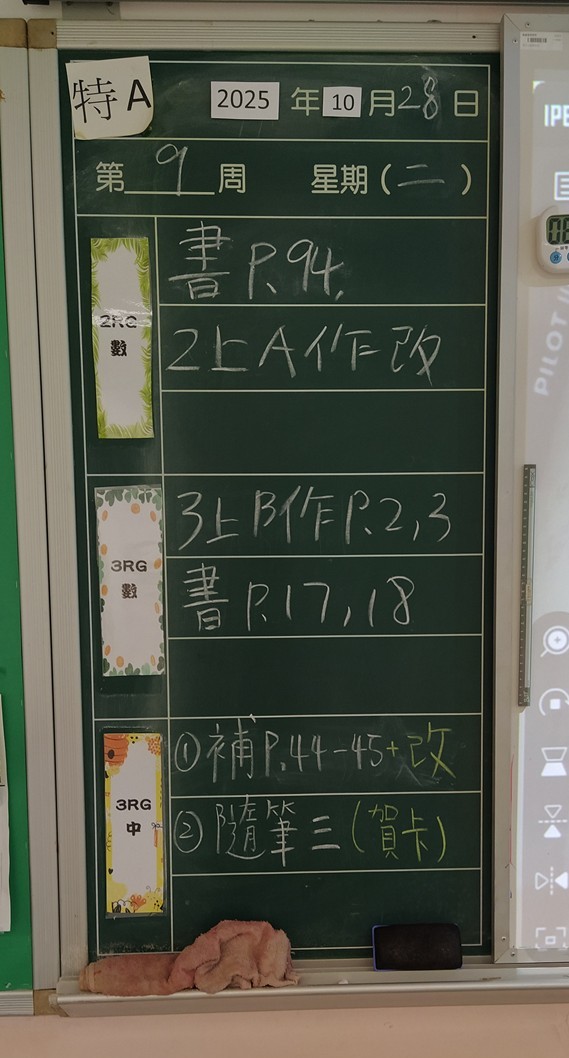 特A
2025 年 10 月 28 日
第 9 周 星期(二)
2RG
數
書 P.94.
2上A作改
3RG
數
3上B作P.2,3
書 P.17,18
3RG
中
①補P.44-45+改
②隨筆三(賀卡)
PILOT